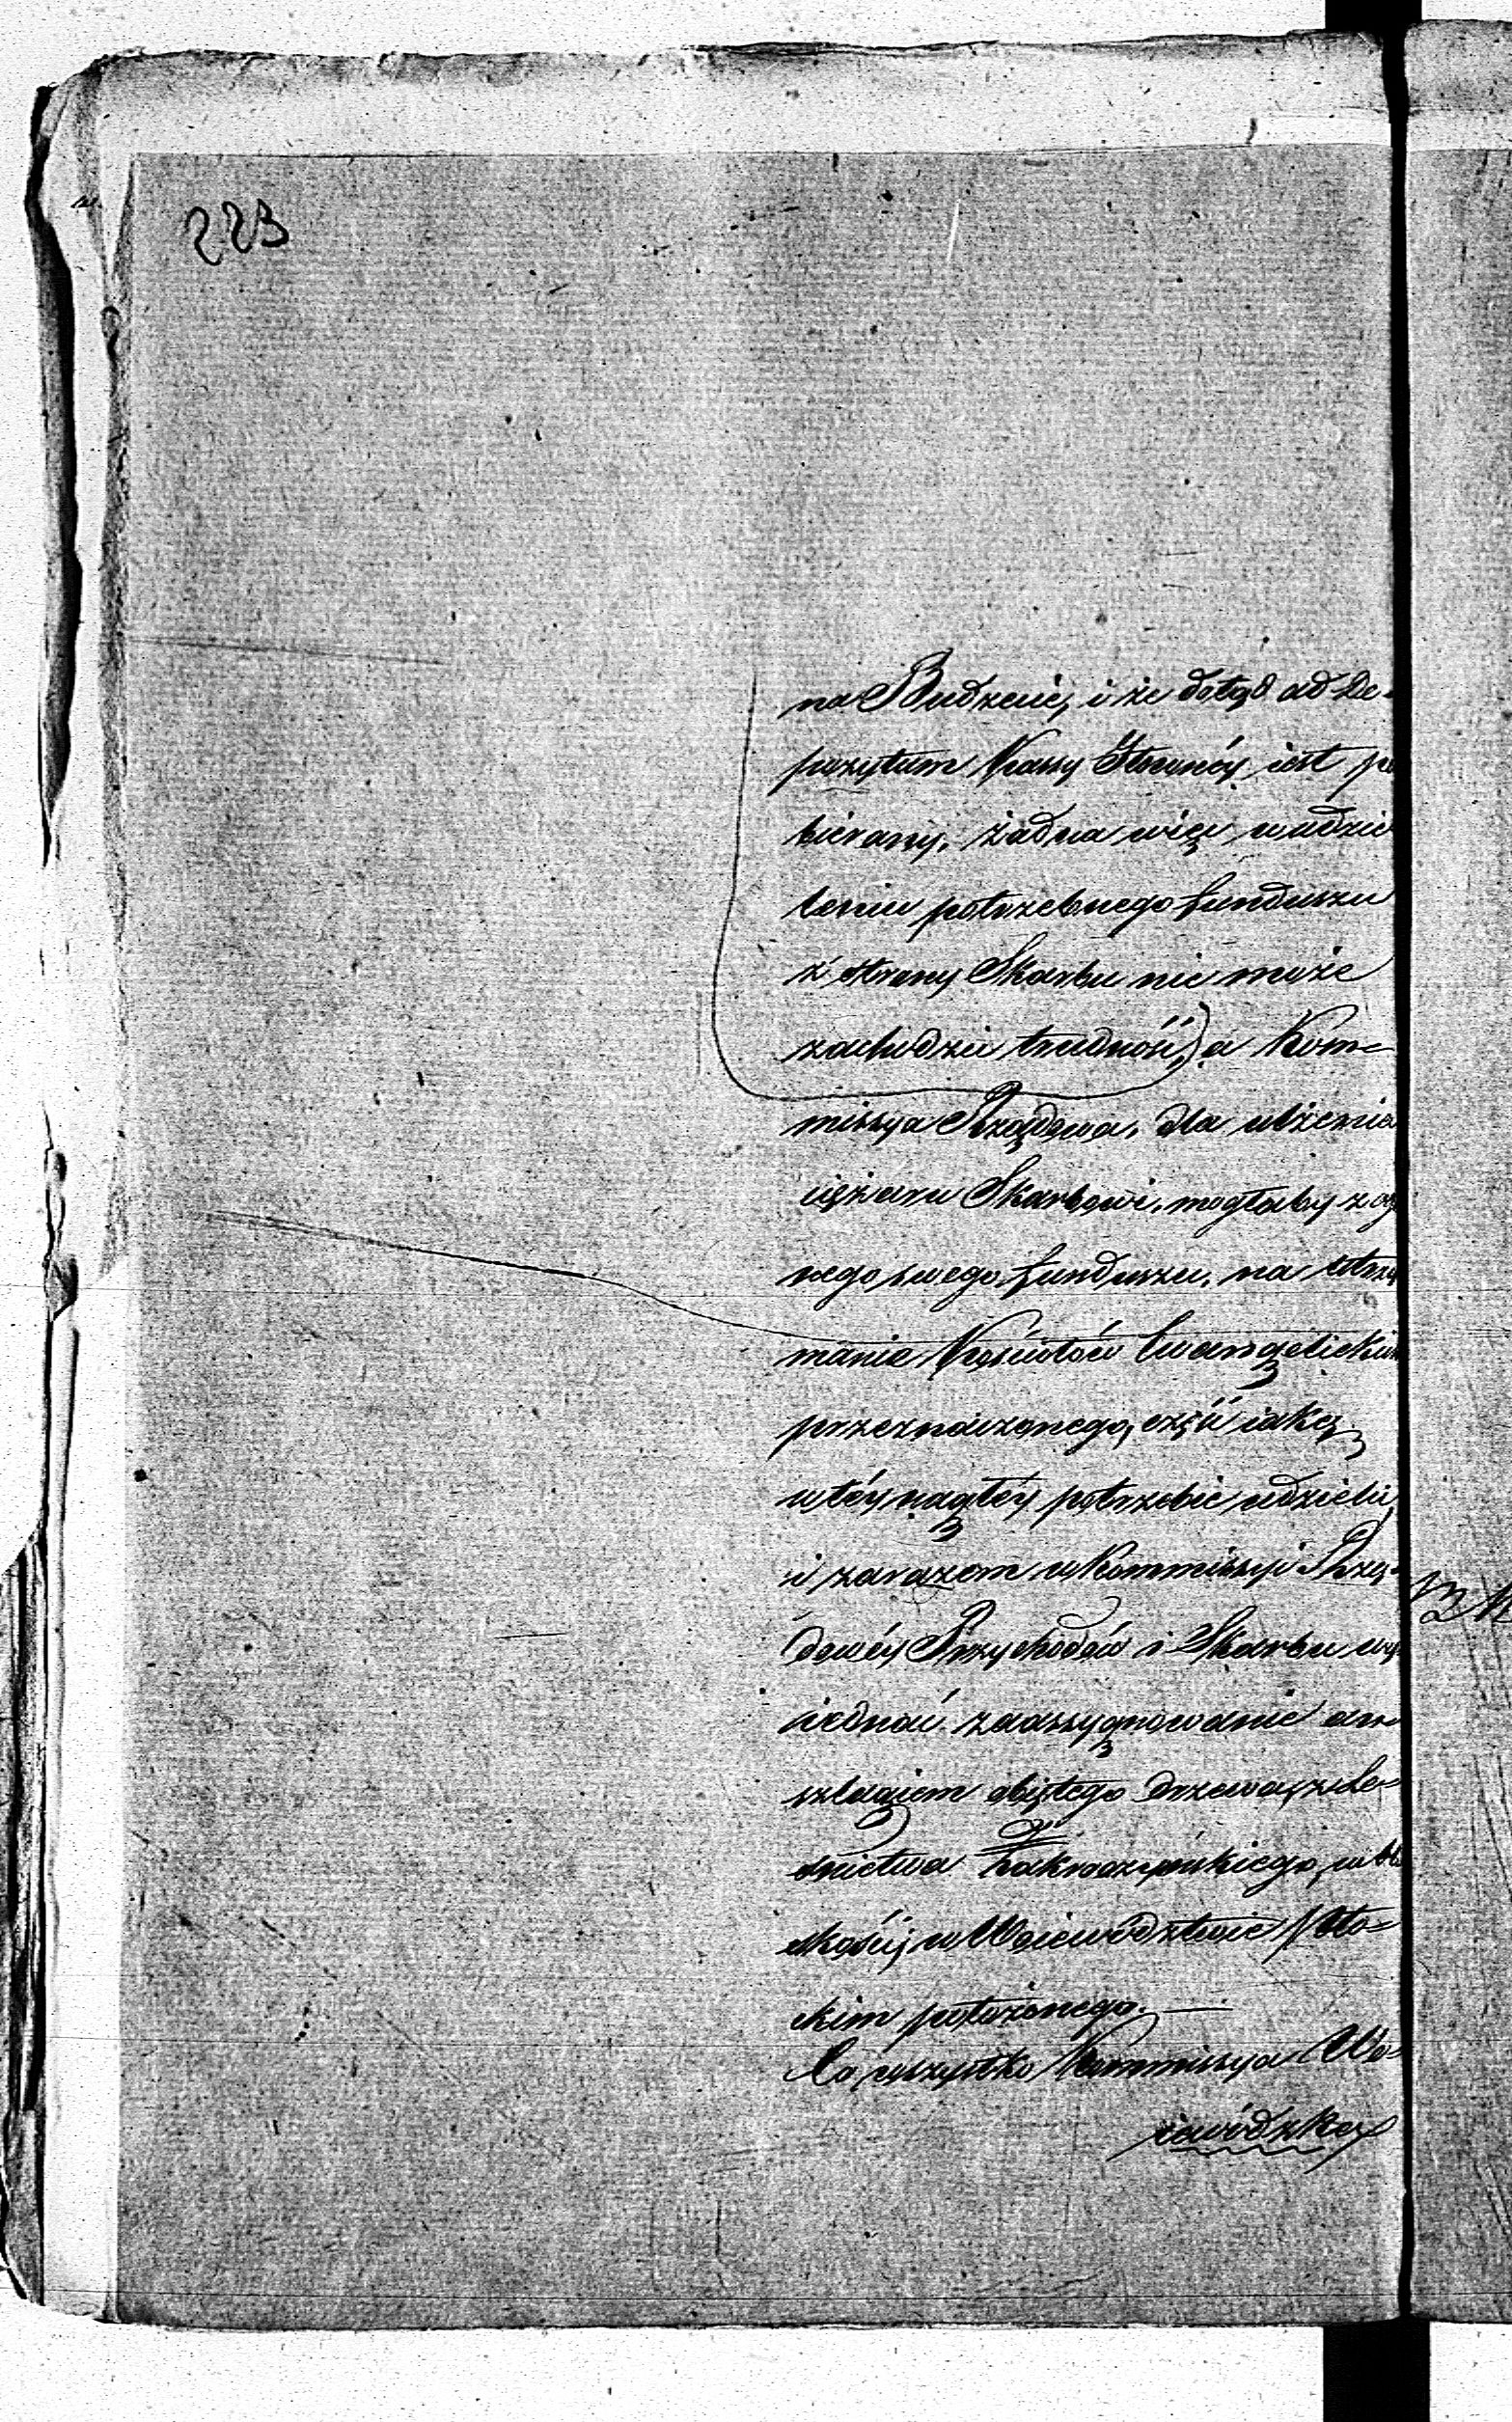 223
na Budzenie, i że dotąd ad De-
pozytum Kassy Główney iest po
bierany, żadna więc w udzie
leniu potrzebnego funduszu
z strony Skarbu nie może
zachodzić trudność,) a Kom-
missya Rządowa, dla ulżenia
ciężaru Skarbowi, mogłaby z og
nego swego funduszu, na utrzy
manie Kościołów Ewangelickich
przeznaczonego, część iaką
w téy nagłéy potrzebie udzielić,
i zarazem w Kommissyi Rzą-
dowéy Przychodów i Skarbu wy
iednać zaassygnowanie an
szlagiem obiętego drzewa, z Le-
śnictwa Zakroczymskiego, w bli
skości, w Woiewództwie Płoc-
kim położonego.—
Co wszystko Kommissya Wo-
iewódzka